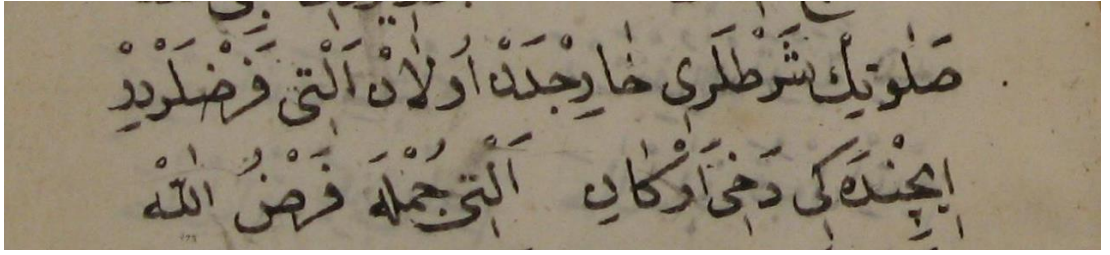 صَلٰوتِڭْ شَرْطلَرِى خٰارِجْدَنْ اُولَانْ اَلْتِى فَرْضلَرْدِرْ
اِيچِنْدَه كِى دَخِى اَرْكَانِ اَلْتِى جُمْلَه فَرْضُ اللّٰه